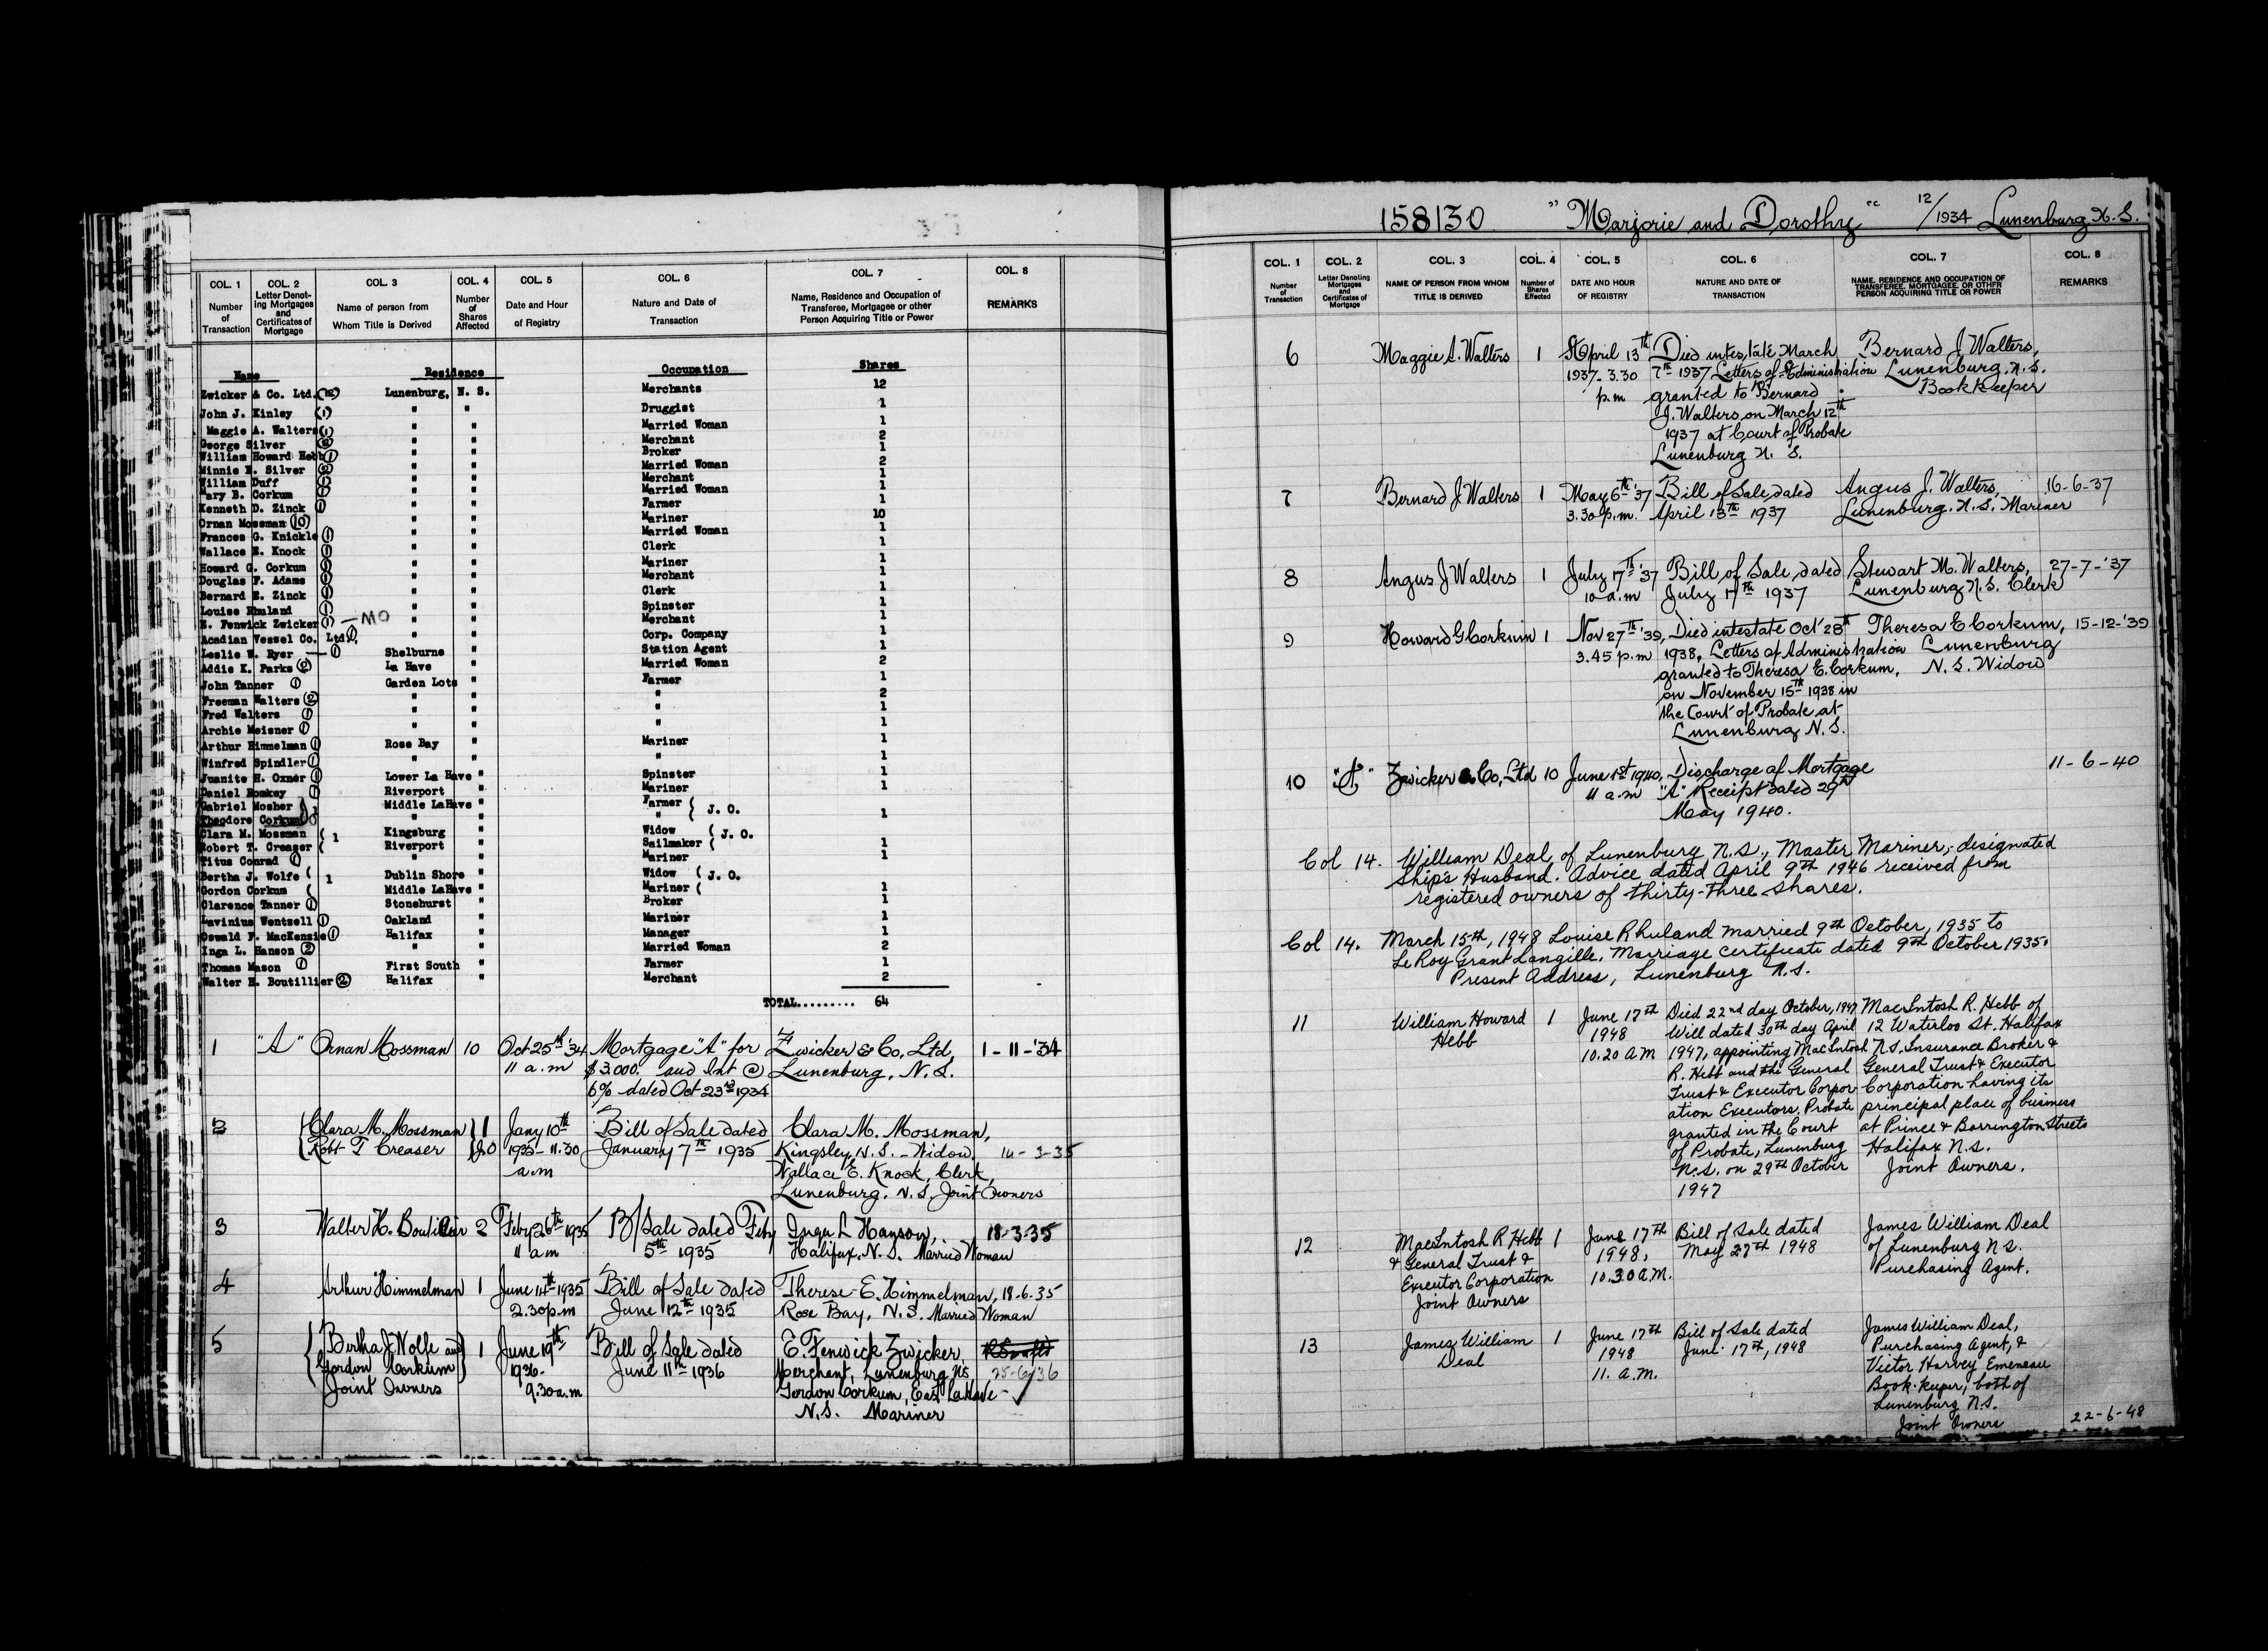 COL. 1 COL. 2 COL. 3 COL. 4 COL. 5 COL. 6 COL. 7 COL. 8
Number of Transaction
Letter Denoting Mortgages and Certificates of Mortgage
Name of person from Whom Title is Derived
Number of Shares Affected
Date and Hour of Registry
Nature and Date of Transaction
Name, Residence and Occupation of Transferee, Mortgagee or other Person Acquiring Title or Power
REMARKS
Name Residence Occupation Shares
Zwicker & Co. Ltd. (12) Lunenburg, N. S. Merchants 12
John J. Kinley (1) " " Druggist 1
Maggie A. Walters (1) " " Married Woman 1
George Silver (2) " " Merchant 2
William Howard Hebb (1) " " Broker 1
Minnie H. Silver (2) " " Married Woman 2
William Duff (1) " " Merchant 1
Mary B. Corkum (1) " " Married Woman 1
Kenneth D. Zinck (1) " " Farmer 1
Ornan Mossman (10) " " Mariner 10
Frances G. Knickle (1) " " Married Woman 1
Wallace E. Knock (1) " " Clerk 1
Howard G. Corkum (1) " " Mariner 1
Douglas F. Adams (1) " " Merchant 1
Bernard E. Zinck (1) " " Clerk 1
Louise Rhuland (1) " " Spinster 1
E. Fenwick Zwicker (1) — MO " " Merchant 1
Acadian Vessel Co. Ltd. (1) " " Corp. Company 1
Leslie W. Ryer — (1) Shelburne " Station Agent 1
Addie K. Parks (2) La Have " Married Woman 2
John Tanner (1) Garden Lots " Farmer 1
Freeman Walters (2) " " " 2
Fred Walters (1) " " " 1
Archie Meisner (1) " " " 1
Arthur Himmelman (1) Rose Bay " Mariner 1
Winfred Spindler (1) " " " 1
Juanite H. Oxner (1) Lower La Have " Spinster 1
Daniel Romkey (1) Riverport " Mariner 1
Gabriel Mosher Middle LaHave " Farmer ( J. O.
Theodore Corkum " " " 1
Clara M. Mossman ( 1 Kingsburg " Widow ( J. O.
Robert T. Creaser ( Riverport " Sailmaker ( 1
Titus Conrad (1) " " Mariner 1
Bertha J. Wolfe ( 1 Dublin Shore " Widow ( J. O.
Gordon Corkum ( Middle LaHave " Mariner ( 1
Clarence Tanner (1) Stonehurst " Broker 1
Lavinius Wentzell (1) Oakland " Mariner 1
Oswald F. MacKenzie (1) Halifax " Manager 1
Inga L. Hanson (2) " " Married Woman 2
Thomas Mason (1) First South " Farmer 1
Walter H. Boutillier (2) Halifax " Merchant 2
TOTAL......... 64
1 "A" Ornan Mossman 10 Oct 25th '34 Mortgage "A" for Zwicker & Co, Ltd, 1-11-'34
11 a.m $3,000. and Int @ Lunenburg, N.S.
6% dated Oct 23rd 1934
2 Clara M. Mossman } 1 Jany 10th Bill of Sale dated Clara M. Mossman,
Robt T Creaser J.O 1935 - 11.30 January 7th 1935 Kingsley N.S. - Widow. 14-3-35
a.m Wallace E. Knock, Clerk,
Lunenburg. N.S, Joint Owners
3 Walter H. Boutilier 2 Feby 26th 1935 B/Sale dated Feby Inga L Hanson, 18-3-35
11 a m 5th 1935 Halifax, N.S. Married Woman
4 Arthur Himmelman 1 June 14th 1935 Bill of Sale dated Therese E. Himmelman, 18-6-35
2.30p.m June 12th 1935 Rose Bay, N.S. Married Woman
5 { Bertha J Wolfe and } 1 June 19th Bill of Sale dated E. Fenwick Zwicker,
Gordon Corkum 1936- June 11th 1936 Merchant, Lunenburg NS, 25-6/36
Joint Owners 9.30a.m Gordon Corkum, East LaHave - ✓
N.S. Mariner
158130 "Marjorie and Dorothy" 12/1934 Lunenburg N.S.
COL. 1 COL. 2 COL. 3 COL. 4 COL. 5 COL. 6 COL. 7 COL. 8
Number of Transaction
Letter Denoting Mortgages and Certificates of Mortgage
NAME OF PERSON FROM WHOM TITLE IS DERIVED
Number of Shares Effected
DATE AND HOUR OF REGISTRY
NATURE AND DATE OF TRANSACTION
NAME, RESIDENCE AND OCCUPATION OF TRANSFEREE, MORTGAGEE, OR OTHER PERSON ACQUIRING TITLE OR POWER
REMARKS
6 Maggie A. Walters 1 April 13th Died intestate March Bernard J Walters,
1937-3.30 7th 1937 Letters of Administration Lunenburg, N.S.
p.m granted to Bernard Bookkeeper
J. Walters on March 12th
1937 at Court of Probate
Lunenburg N. S.
7 Bernard J Walters 1 May 6th '37 Bill of Sale dated Angus J. Walters, 16-6-37
3.30 p.m. April 13th 1937 Lunenburg. N.S. Mariner
8 Angus J Walters 1 July 17th '37 Bill of Sale, dated Stewart M. Walters, 27-7-'37
10 a.m July 17th 1937 Lunenburg N.S. Clerk
9 Howard G Corkum 1 Nov 27th '39, Died intestate Oct 28th Theresa E Corkum, 15-12-'39
3.45 p.m 1938, Letters of Administration Lunenburg
granted to Theresa E. Corkum, N. S. Widow
on November 15th 1938 in
the Court of Probate at
Lunenburg N.S.
10 "A" Zwicker & Co, Ltd 10 June 1st 1940, Discharge of Mortgage 11-6-40
11 a.m "A" Receipt dated 29th
May 1940.
Col 14. William Deal of Lunenburg N.S., Master Mariner, designated
Ship's Husband. Advice dated April 9th 1946 received from
registered owners of thirty-three shares.
Col 14. March 15th, 1948 Louise Rhuland married 9th October, 1935 to
Le Roy Grant Langille. Marriage certificate dated 9th October 1935.
Present Address, Lunenburg N.S.
11 William Howard 1 June 17th Died 22nd day October, 1947 MacIntosh R. Hebb of
Hebb 1948 Will dated 30th day April 12 Waterloo St. Halifax
10.20 AM 1947, appointing MacIntosh N.S. Insurance Broker &
R. Hebb and the General General Trust & Executor
Trust & Executor Corpor- Corporation having its
ation Executors. Probate principal place of business
granted in the Court at Prince & Barrington Streets
of Probate, Lunenburg Halifax N.S.
N.S. on 29th October Joint Owners.
1947
12 MacIntosh R Hebb 1 June 17th Bill of Sale dated James William Deal
& General Trust & 1948, May 27th 1948 of Lunenburg N.S.
Executor Corporation 10.30 A.M. Purchasing Agent.
Joint Owners
13 James William 1 June 17th Bill of Sale dated James William Deal,
Deal 1948 June 17th, 1948 Purchasing Agent, &
11. A.M. Victor Harvey Emeneau
Book-keeper, both of
Lunenburg N.S.
Joint Owners 22-6-48